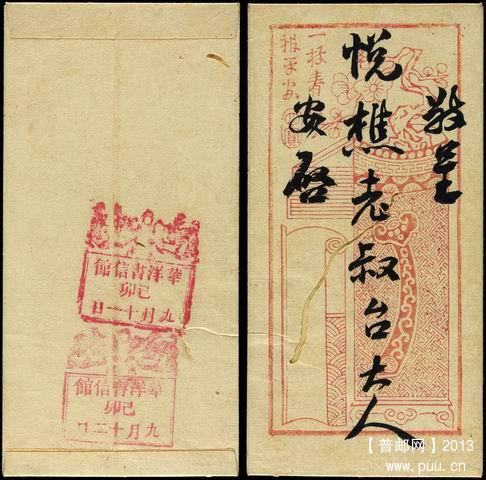 館信書洋華
己卯
日一十月九
館信書洋華
己卯
日二十月九
敬呈
悦樵老叔台大人
安啓
一枝青
報平安
【普邮网】2013
www.puu.cn